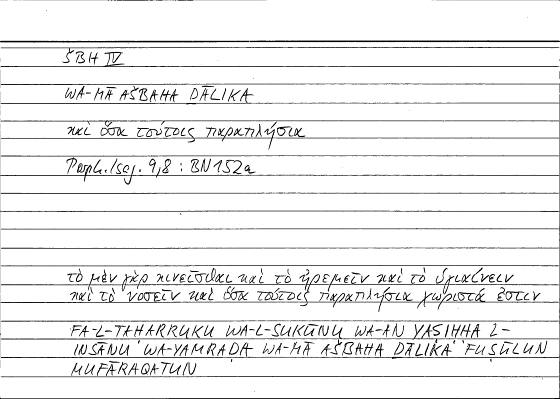 ŠBH IV
WA-MĀ AŠBAHA ḎĀLIKA
καὶ ὅσα τούτοις παραπλήσια
Porph. Isag. 9,8 : BN 152a
τὸ μὲν γὰρ κινεῖσθαι καὶ τὸ ἠρεμεῖν καὶ τὸ ὑγιαίνειν
καὶ τὸ νοσεῖν καὶ ὅσα τούτοις παραπλήσια χωριστά ἐστιν
FA-L-TAḤARRUKU WA-L-SUKŪNU WA-AN YAṢIḤḤA L-
INSĀNU WA-YAMRAḌA WA-MĀ AŠBAHA ḎĀLIKA FUṢŪLUN
MUFĀRAQATUN